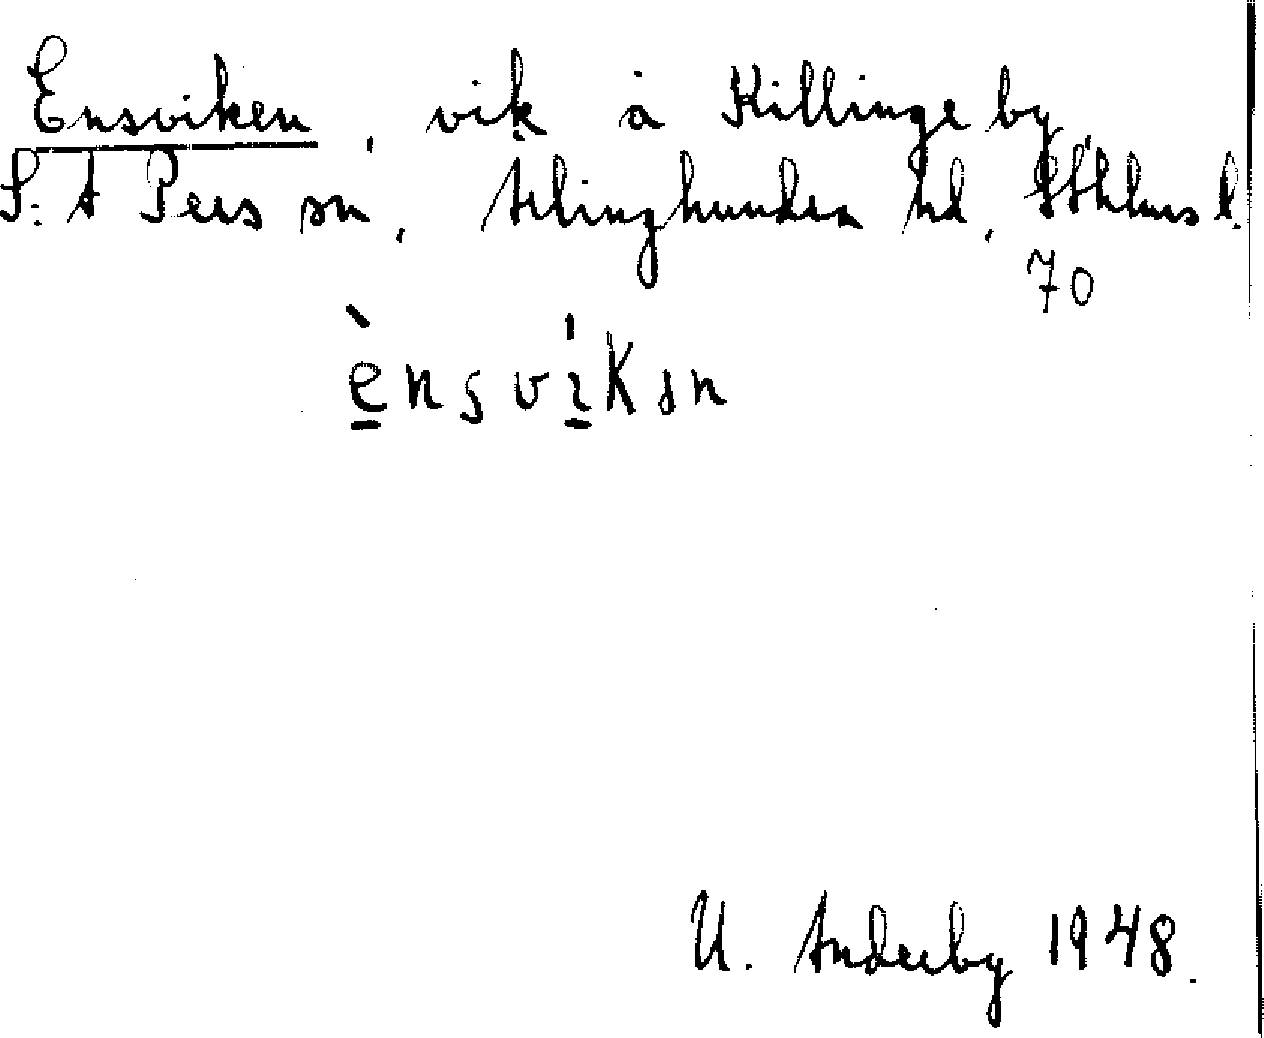 Ensviken, vik å Killinge by,
S:t Pers sn, Ärlinghundra hd, Sthlms l.
70
ènsvikən
U. Anderby 1948.